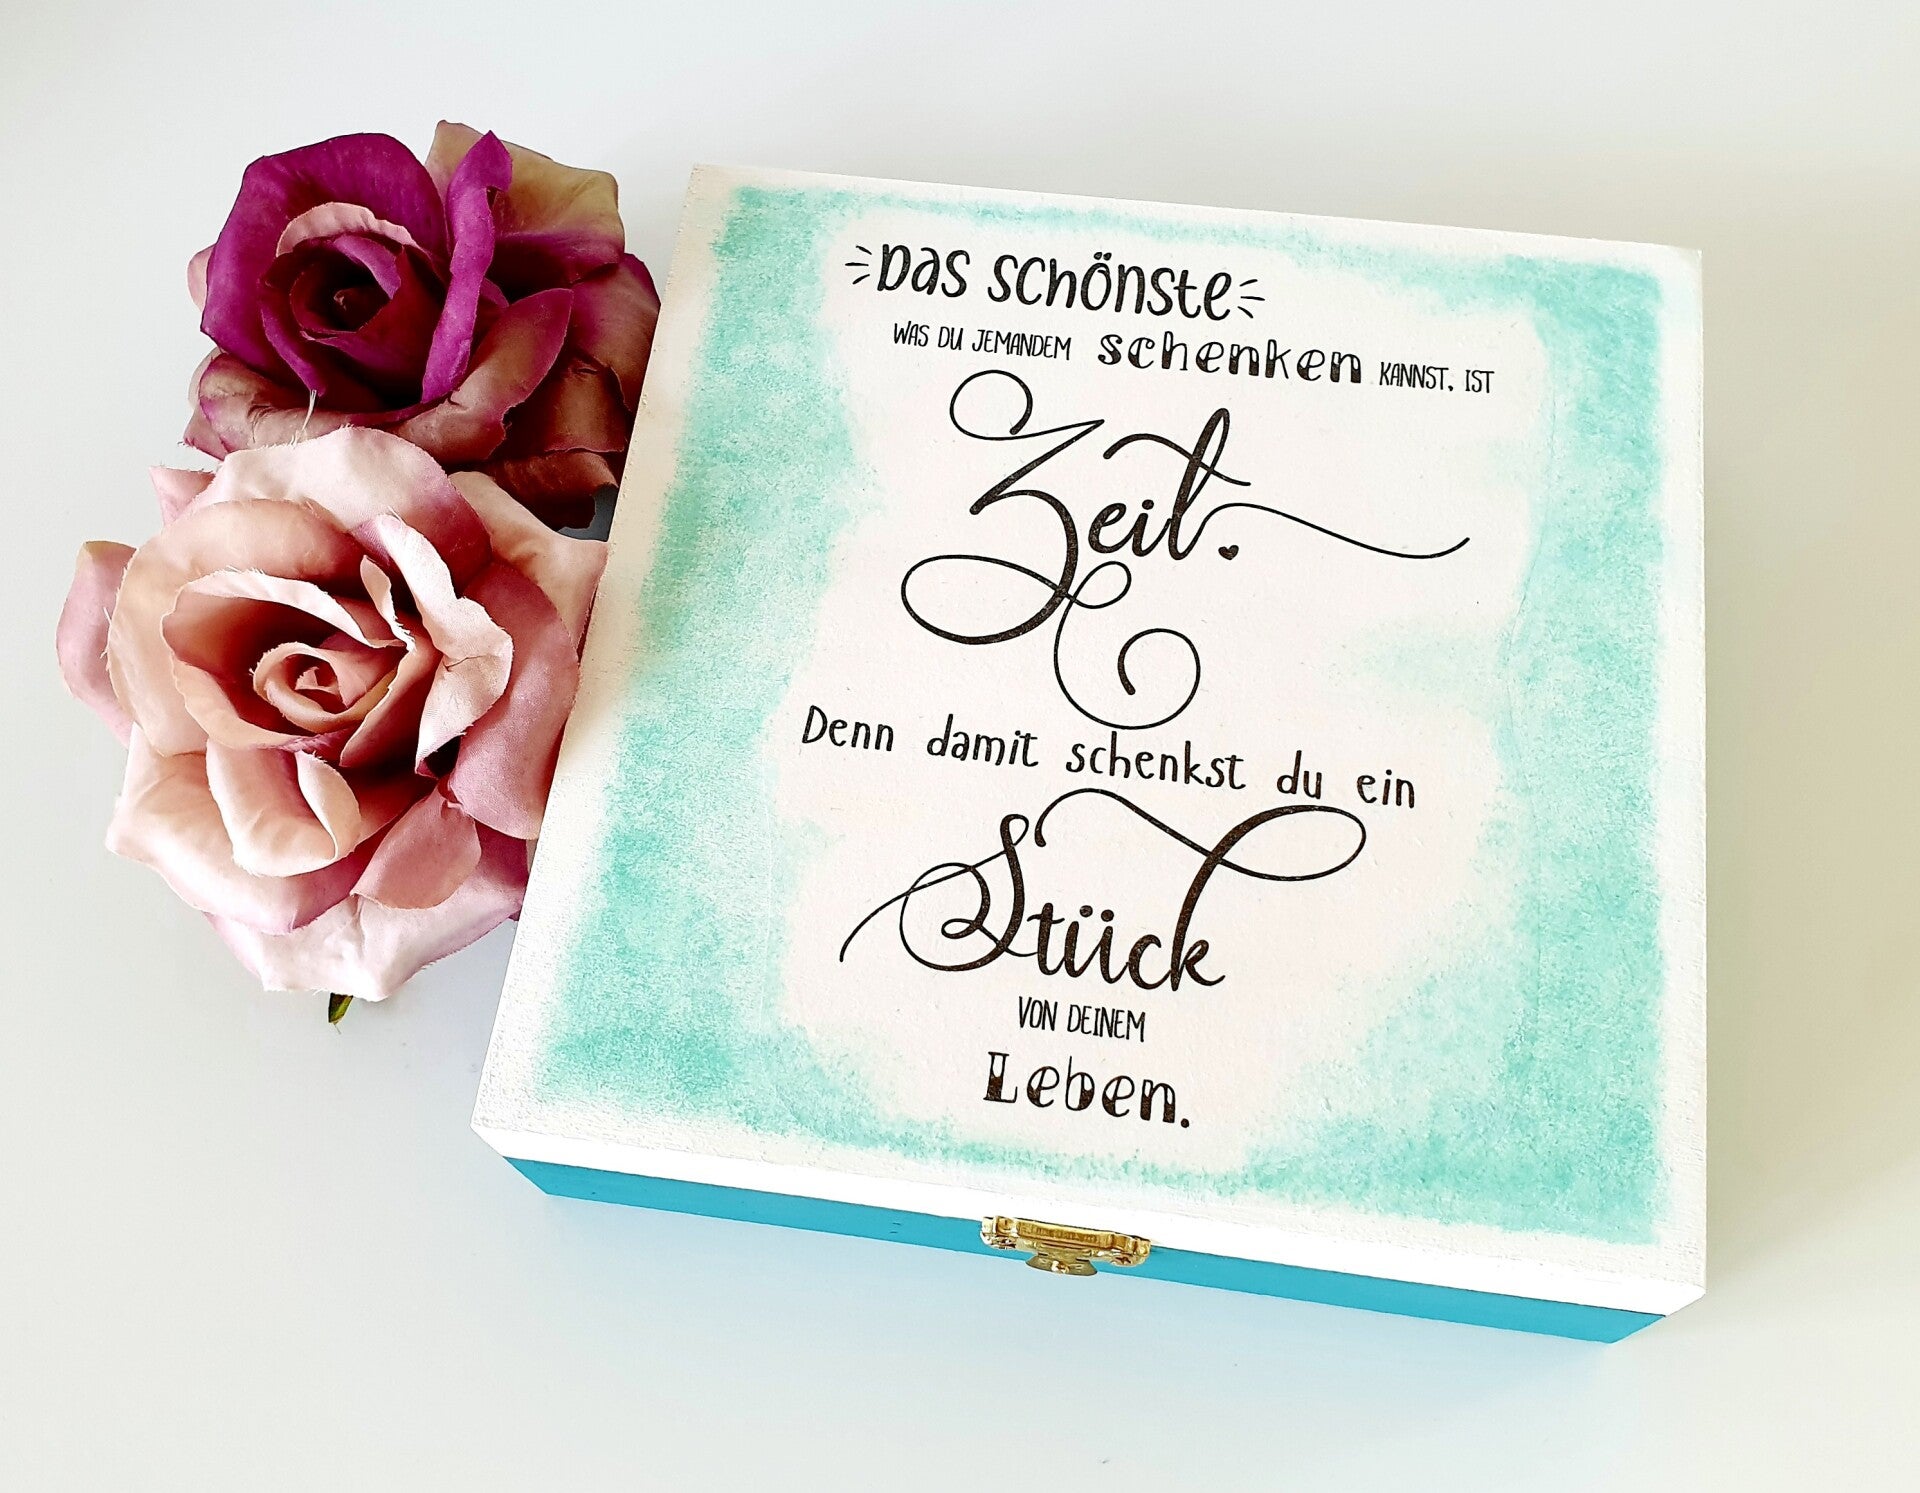 Das schönste
WAS DU JEMANDEM schenken KANNST, IST
Zeit.
Denn damit schenkst du ein
Stück
VON DEINEM
Leben.